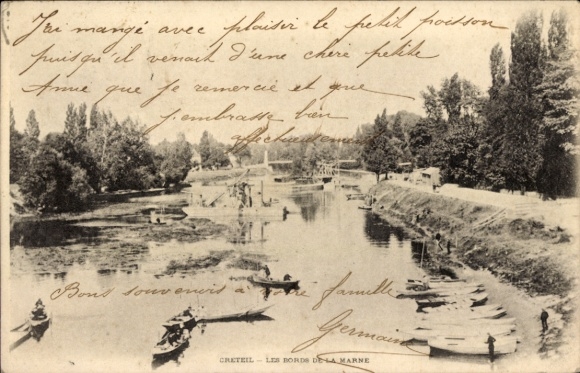 J'ai mangé avec plaisir le petit poisson
puisqu'il venait d'une chère petite
Anne que je remercie et que
j'embrasse bien
affectueusement
Bons souvenirs à votre famille
Germain
CRETEIL - LES BORDS DE LA MARNE